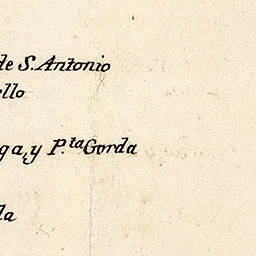 de S. Antonio
ello
ga, y P.ta Gorda
la